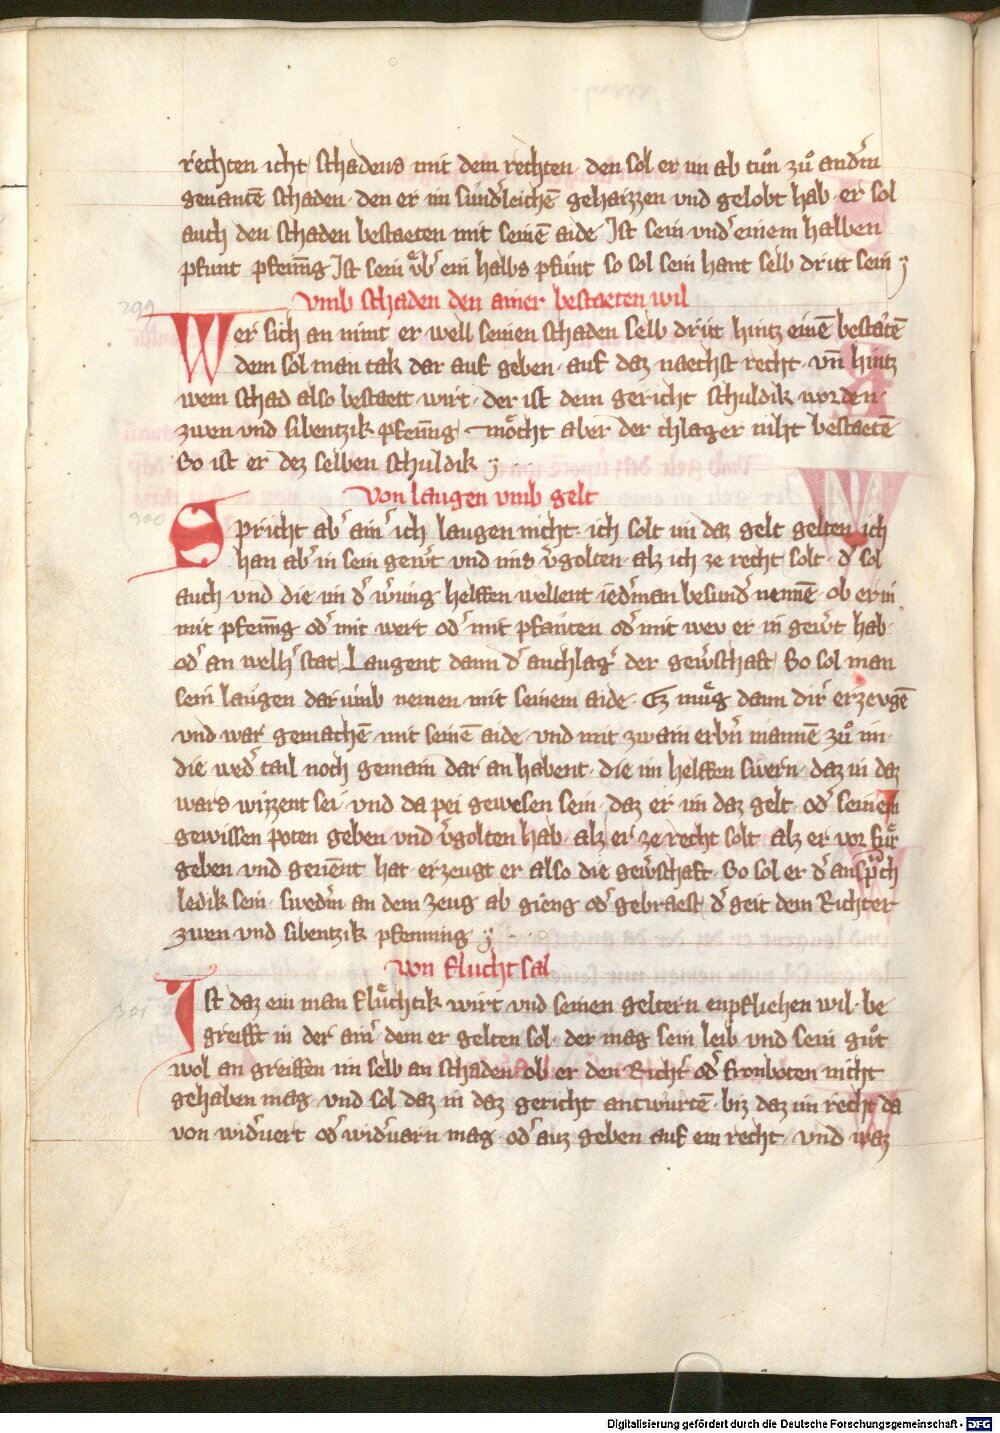 rechten icht schadens mit dem rechten · den sol er im ab tuͦn zuͦ anderm
genantē schaden · den er im sunderleichē gehaizzen vnd gelobt hab · er sol
auch den schaden bestaeten mit seinē aide Ist sein vnder einem halben
pfunt pfennīg Ist sein vͤber ein halbs pfunt so sol sein hant selb dritt sein
299
vmb schaden den ainer bestaeten wil
Wer sich an nimt er well seinen schaden selb dritt hintz einē bestaetē
dem sol man tak dar auf geben · auf daz naechst recht · vn̄ hintz
wem schad also bestaett wirt · der ist dem gericht schuldik worden ·
zwen vnd sibentzik pfennīg · moͤcht aber der chlager niht bestaetē
So ist er dez selben schuldik
von laugen vmb gelt
300
Spricht aber ainer ich laugen nicht · ich solt im daz gelt gelten ich
han aber in sein gewert vnd ims vergolten · alz ich ze recht solt · der sol
auch vnd die im der werung helffen wellent iederman besunder nennē · ob er in
mit pfennīg oder mit wert oder mit pfanten oder mit wev er in gewert hab ·
oder an welher stat Laugent dann der anchlager der gewerschaft So sol man
sein laugen darumb nemen mit seinem aide · Ez mug dann dirr erzevgē
vnd war gemachē mit seinē aide · vnd mit zwain erbern mannē zuͦ im ·
die weder tail noch gemain dar an habent · die im helffen swern · daz in daz
wars wizzent sei · vnd da pei gewesen sein · daz er im daz gelt · oder seinem
gewissen poten geben vnd vergolten hab · alz er ze recht solt alz er vor fuͤr
geben vnd genent hat · erzeugt er also die gewerschaft · So sol er der ansprach
ledik sein · swederm an dem zeug ab gieng oder gebraest der geit dem Richter
zwen vnd sibentzik pfenning
von fluchtsal
301
Ist daz ein man fluͤchtik wirt vnd seinen geltern enpfliehen wil · be
greifft in der ainer dem er gelten sol · der mag sein leib vnd sein guͦt
wol an greiffen im selb an schaden ob er den Richter oder fronboten nicht
gehaben mag · vnd sol daz in daz gericht antwurtē · biz daz im recht da
von widervert oder widervarn mag · oder auz geben auf ein recht · vnd waz
Digitalisierung gefördert durch die Deutsche Forschungsgemeinschaft - DFG